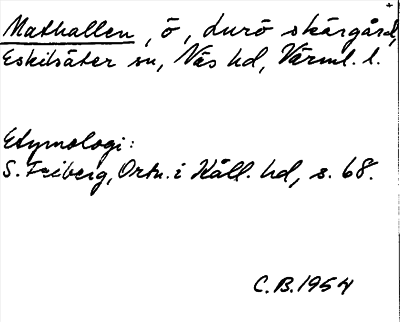 Mathallen, ö, Lurö skärgård,
Eskilsäter sn, Näs hd, Värml. l.
Etymologi:
S. Friberg, Ortn. i Kåll. hd, s. 68.
C.B. 1954